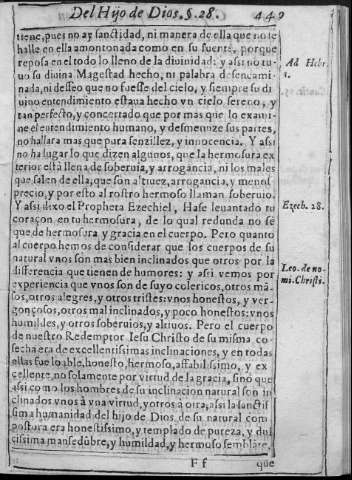 Del Hijo de Dios. §. 28. 449
tiene, pues no ay sanctidad, ni manera de ella que no se
halle en ella amontonada como en su fuente, porque
reposa en el todo lo lleno de la diuinidad: y assi no tu-
uo su diuina Magestad hecho, ni palabra desencami-
nada, ni desseo que no fuesse del cielo, y siempre su di
uino entendimiento estaua hecho vn cielo sereno, y
tan perfecto, y concertado que por mas que lo exami-
ne el entendimiento humano, y desmenuze sus partes,
no hallara mas que pura senzillez, y innocencia. Y assi
no ha lugar lo que dizen algunos, que la hermosura ex
terior està llena de soberuia, y arrogancia, ni los males
que salen de ella, que son altuez, arrogancia, y menos
precio, y por esto al rostro hermoso llaman soberuio.
Y assi dixo el Propheta Ezechiel, Hase leuantado tu
coraçon en tu hermosura, de lo qual redunda no sè
que de hermosura y gracia en el cuerpo. Pero quanto
al cuerpo hemos de considerar que los cuerpos de su
natural vnos son mas bien inclinados que otros por la
differencia que tienen de humores: y assi vemos por
experiencia que vnos son de suyo colericos, otros mã-
sos, otros alegres, y otros tristes: vnos honestos, y ver-
gonçosos, otros mal inclinados, y poco honestos: vnos
humildes, y otros soberuios, y altiuos. Pero el cuerpo
de nuestro Redemptor Iesu Christo de su misma co-
secha era de excellentissimas inclinaciones, y en todas
ellas fue loable, honesto, hermoso, affabilissimo, y ex
cellente, no solamente por virtud de la gracia, sino que
assi como los hombres de su inclinacion natural son in
clinados vnos à vna virtud, y otros à otra, assi la sanctis
sima humanidad del hijo de Dios, de su natural com
postura era honestissimo, y templado de pureza, y dul
cissima mansedũbre, y humildad, y hermoso semblãte,
F f que
Ad Hebr.
1.
Ezech. 28.
Leo. de no-
mi. Christi.